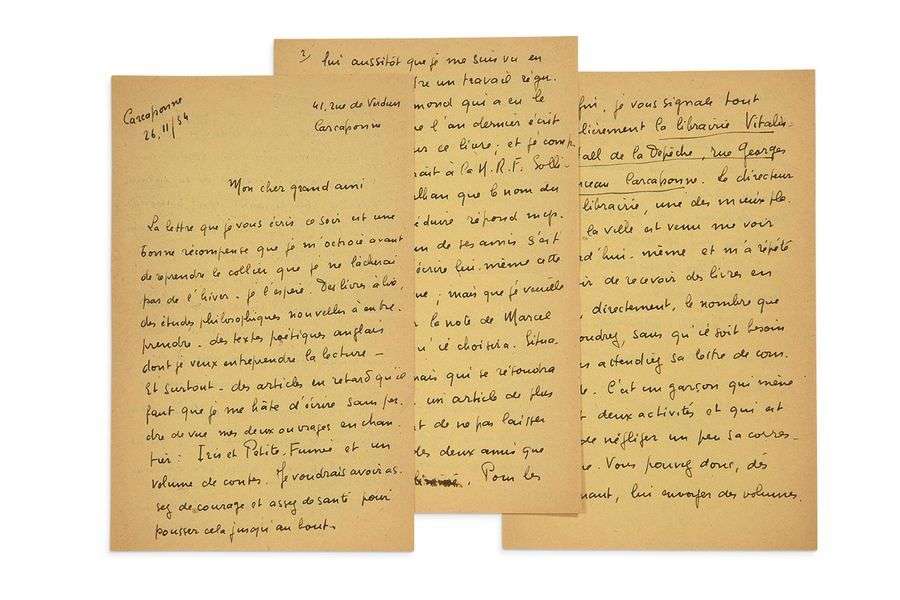 Carcassonne
26/11/54
41, rue de Verdun
Carcassonne
Mon cher grand ami
La lettre que je vous écris ce soir est une
bonne récompense que je m'octroie avant
de reprendre le collier que je ne lâcherai
pas de l'hiver - je l'espère. Des livres à lire,
des études philosophiques nouvelles à entre-
prendre - des textes poétiques anglais
dont je veux entreprendre la lecture -
Et surtout - des articles en retard qu'il
faut que je me hâte d'écrire sans per-
dre de vue mes deux ouvrages en chan-
tier : Iris et Petite-Fumée et un
volume de contes. Je voudrais avoir as-
sez de courage et assez de santé pour
pousser cela jusqu'au bout.
2/ lui aussitôt que je me suis vu en
un travail régu-
mond qui a eu le
l'an dernier écrit
ur ce livre ; et je
ait à la N.R.F.
que le nom du
répond
de ses amis s'est
écrire lui-même cette
; mais que je veuille
la note de Marcel
choisira.
mais qui se résoudra
un article de plus
de ne pas laisser
des deux amis que
Pour les
je vous signale tout
lièrement la librairie Vitalis-
all de la Dépêche, rue Georges
nceau Carcassonne. Le directeur
librairie, une des mieux pla-
la ville est venu me voir
d'hui-même et m'a répété
ir de recevoir des livres en
directement, le nombre que
oudrez, sans qu'il soit besoin
attendiez sa lettre de com-
C'est un garçon qui mène
deux activités et qui est
de négliger un peu sa corres-
Vous pouvez donc, dès
nant, lui envoyer des volumes.